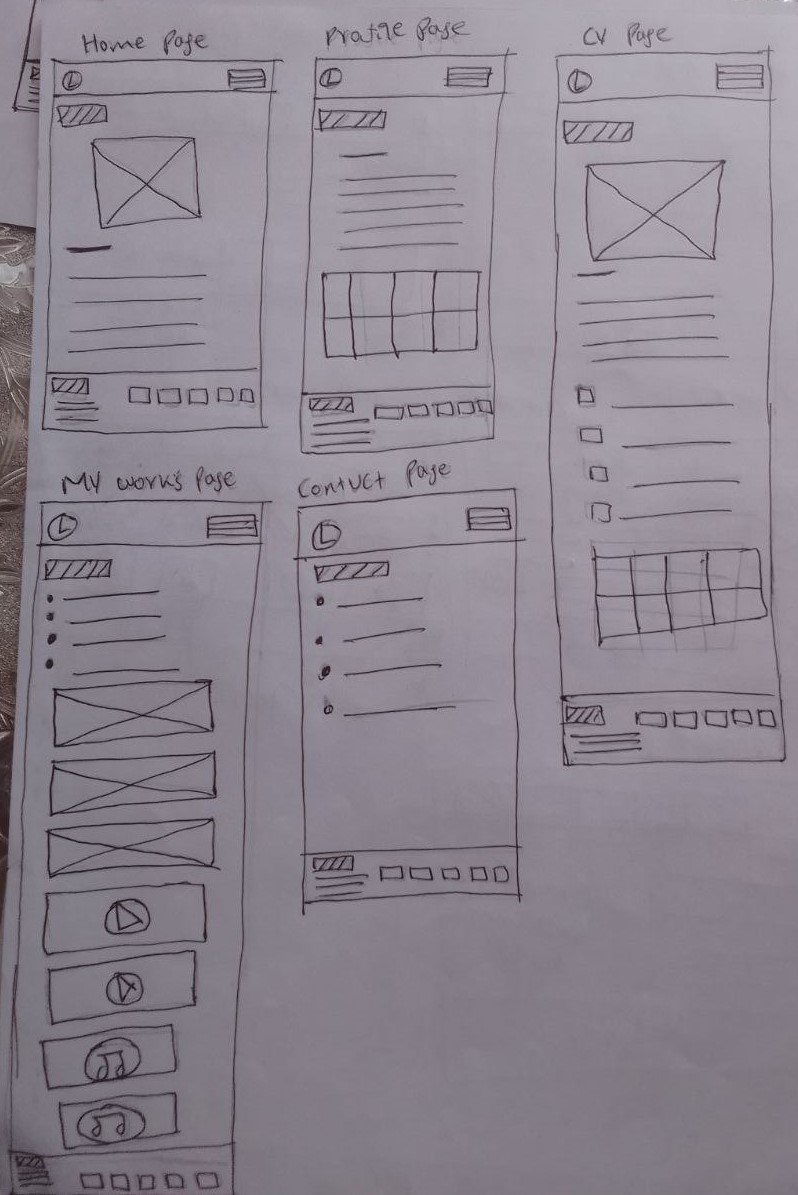 Home Page
Profile Page
CV Page
L
L
L
My works Page
Contuct Page
L
L